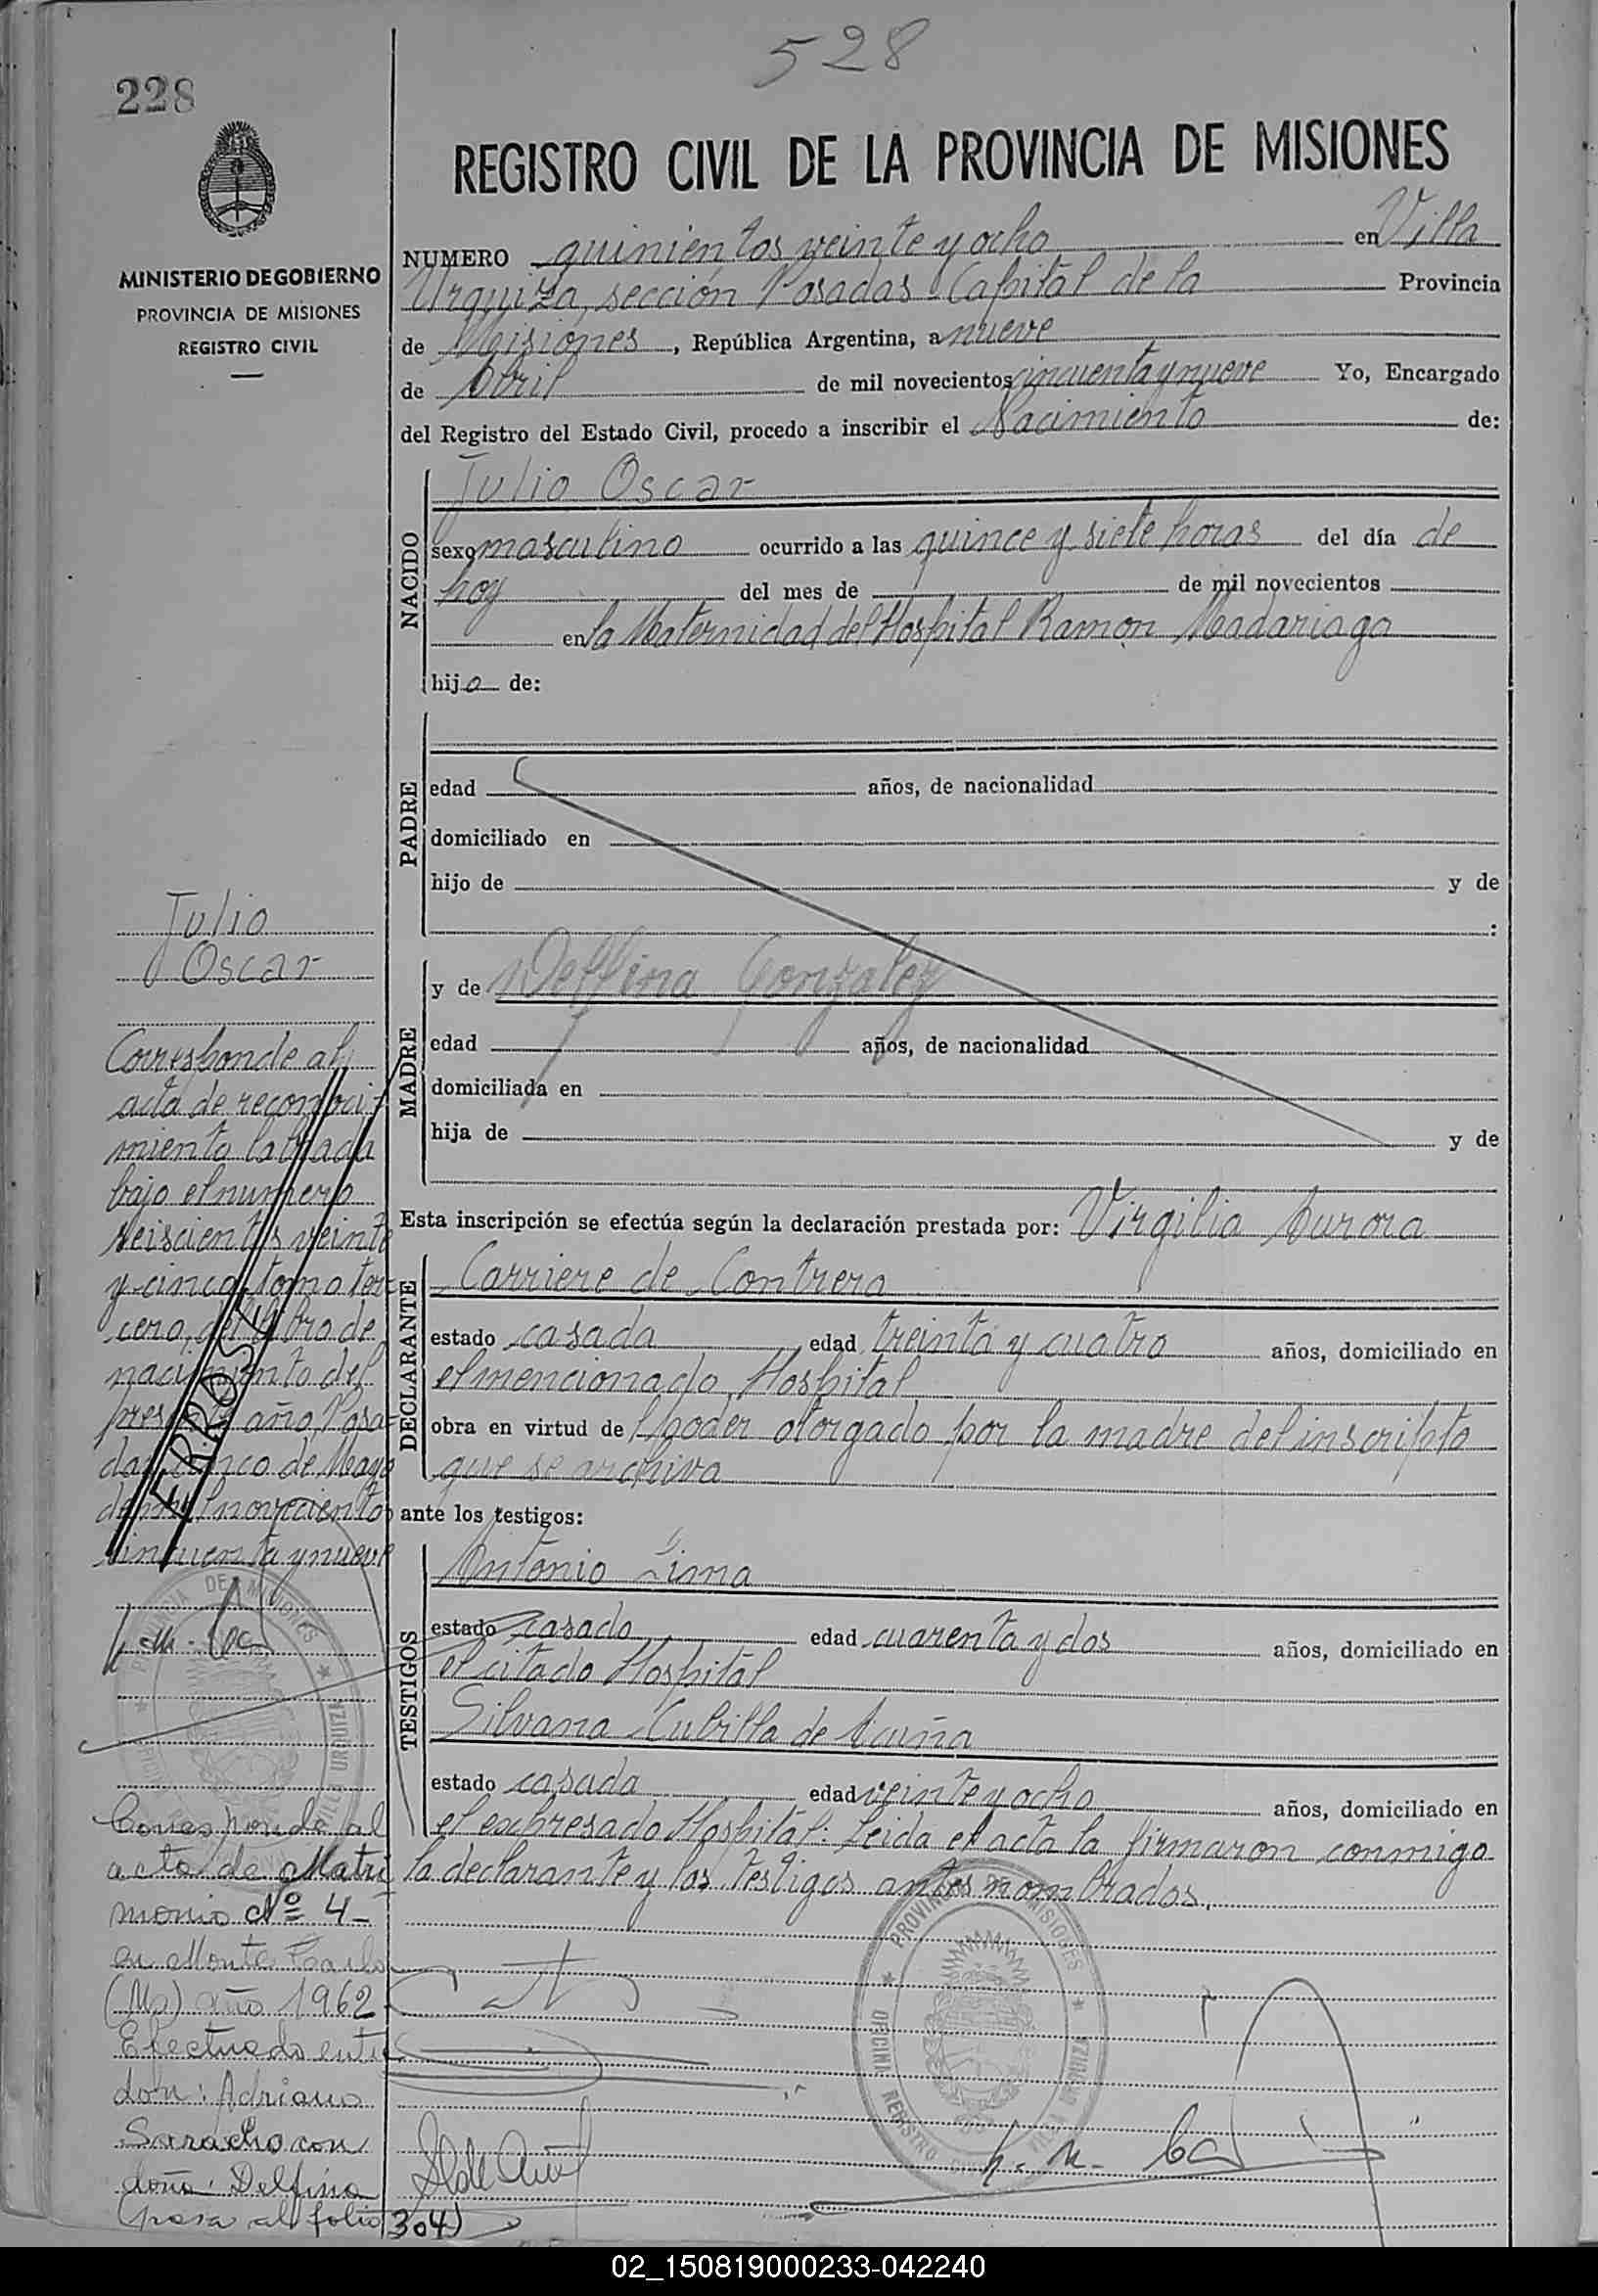 528
228
REGISTRO CIVIL DE LA PROVINCIA DE MISIONES
MINISTERIO DE GOBIERNO
PROVINCIA DE MISIONES
REGISTRO CIVIL
NUMERO quinientos veinte y ocho en Villa
Urquiza, sección Posadas Capital de la Provincia
de Misiones, República Argentina, a nueve
de Abril de mil novecientos cincuenta y nueve Yo, Encargado
del Registro del Estado Civil, procedo a inscribir el Nacimiento de:
NACIDO
Julio Oscar
sexo masculino ocurrido a las quince y siete horas del día de
hoy del mes de de mil novecientos
en la Maternidad del Hospital Ramon Madariaga
hijo de:
PADRE
edad años, de nacionalidad
domiciliado en
hijo de y de
:
MADRE
y de Delfina Gonzalez
edad años, de nacionalidad
domiciliada en
hija de y de
Esta inscripción se efectúa según la declaración prestada por: Virgilia Aurora
DECLARANTE
Carriere de Contrera
estado casada edad treinta y cuatro años, domiciliado en
el mencionado Hospital
obra en virtud de poder otorgado por la madre del inscripto
que se archiva
ante los testigos:
TESTIGOS
Antonio Lima
estado casado edad cuarenta y dos años, domiciliado en
el citado Hospital
Silvana Cubilla de Acuña
estado casada edad veinte y ocho años, domiciliado en
el expresado Hospital: Leida el acta la firmaron conmigo
la declarante y los testigos antes nombrados.
Julio
Oscar
Corresponde al
acta de reconoci-
miento labrada
bajo el numero
seiscientos veinte
y cinco, tomo ter-
cero, del libro de
nacimiento del
presente año, Posa-
das, cinco de Mayo
de mil novecientos
cincuenta y nueve
ERROSE
Corresponde al
acta de Matri
monio Nº 4-
en Monte Carlo
(Ms) año 1962
Efectuado entre
don: Adriano
Saracho con
doña: Delfina
(pasa al folio 304)
PROVINCIA DE MISIONES
OFICINA REGISTRO
VILLA URQUIZA
02_150819000233-042240